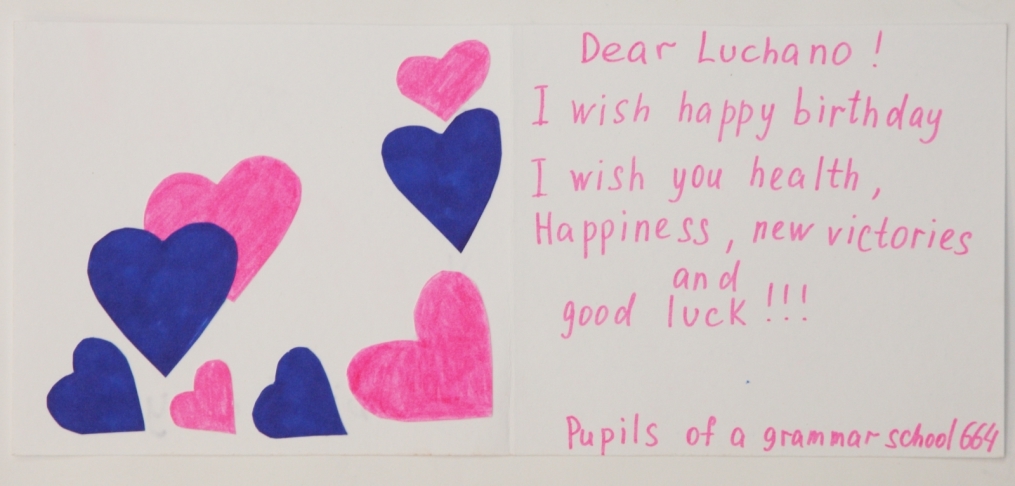 Dear Luchano!
I wish happy birthday
I wish you health,
Happiness, new victories
and
good luck!!!
Pupils of a grammar school 664